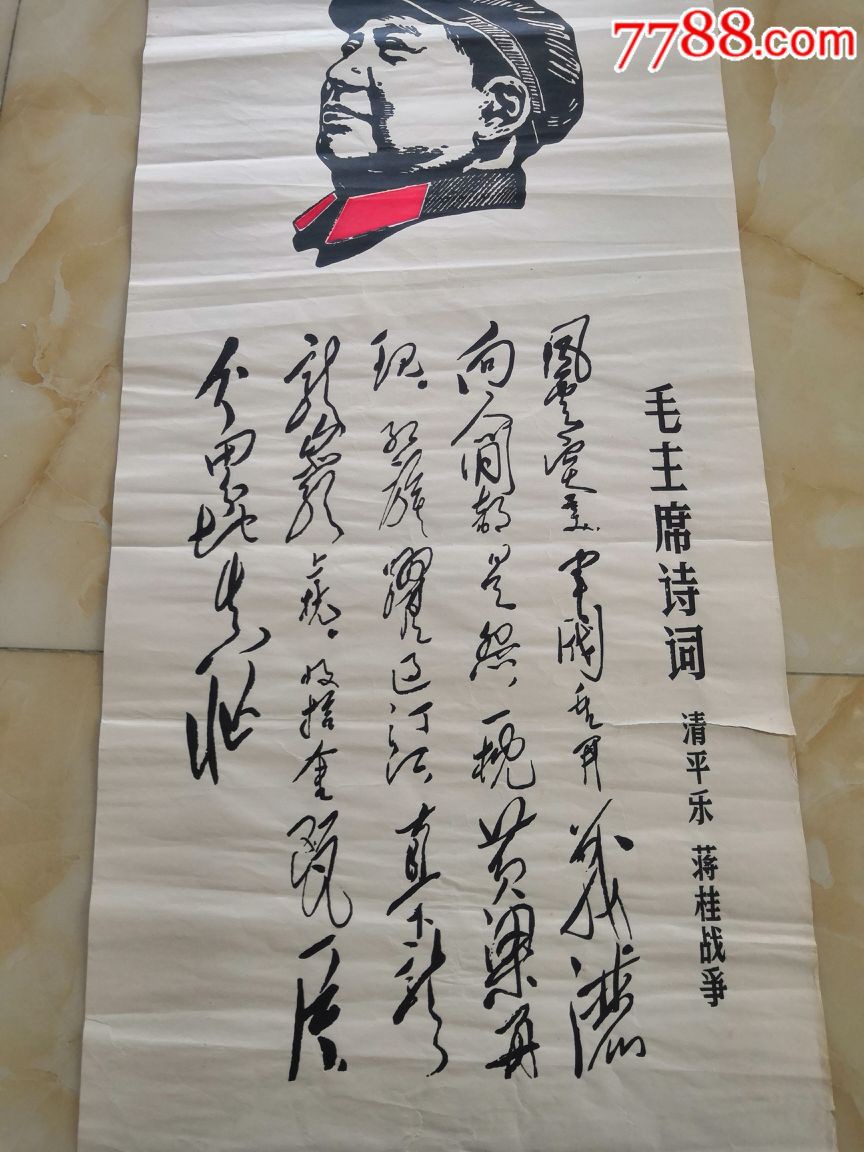 7788.com
毛主席诗词
清平乐 蒋桂战争
风云突变军阀重开战洒
向人间都是怨,一枕黄粱再
现。红旗躍过汀江,直下龙
岩上杭。收拾金瓯一片,
分田分地真忙